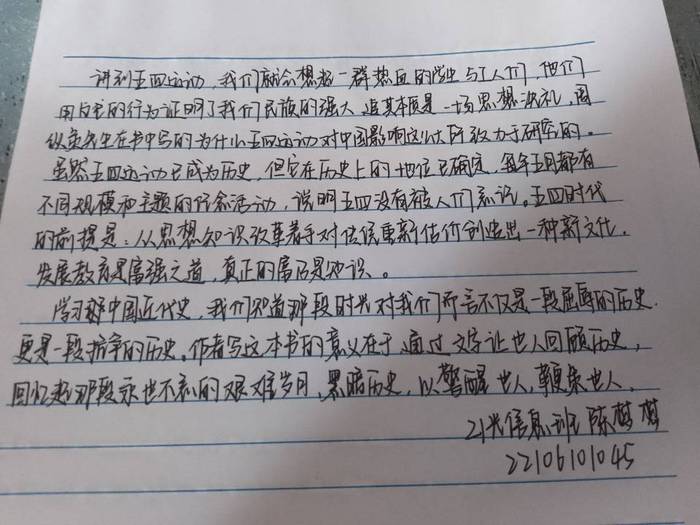 讲到五四运动，我们就会想起一群热血的学生与工人们，他们
用自己的行为证明了我们民族的强大，追其本质是一场思想洗礼，周
纵先生在书中写的为什么五四运动对中国影响这么大所致力于研究的。
虽然五四运动已成为历史，但它在历史上的地位已确定，每年五月都有
不同规模和主题的纪念活动，说明五四没有被人们忘记。五四时代
的前提是：从思想知识改革着手对传统重新估价创造出一种新文化，
发展教育是富强之道，真正的富乃是知识、。
学习中国近代史，我们知道那段时光对我们而言不仅是一段屈辱的历史，
更是一段抗争的历史。作者写这本书的意义在于，通过文字让世人回顾历史，
回忆起那段永世不忘的艰难岁月，黑暗历史，以警醒世人，鞭策世人。
21光信息班 陈梦梦
22106101045